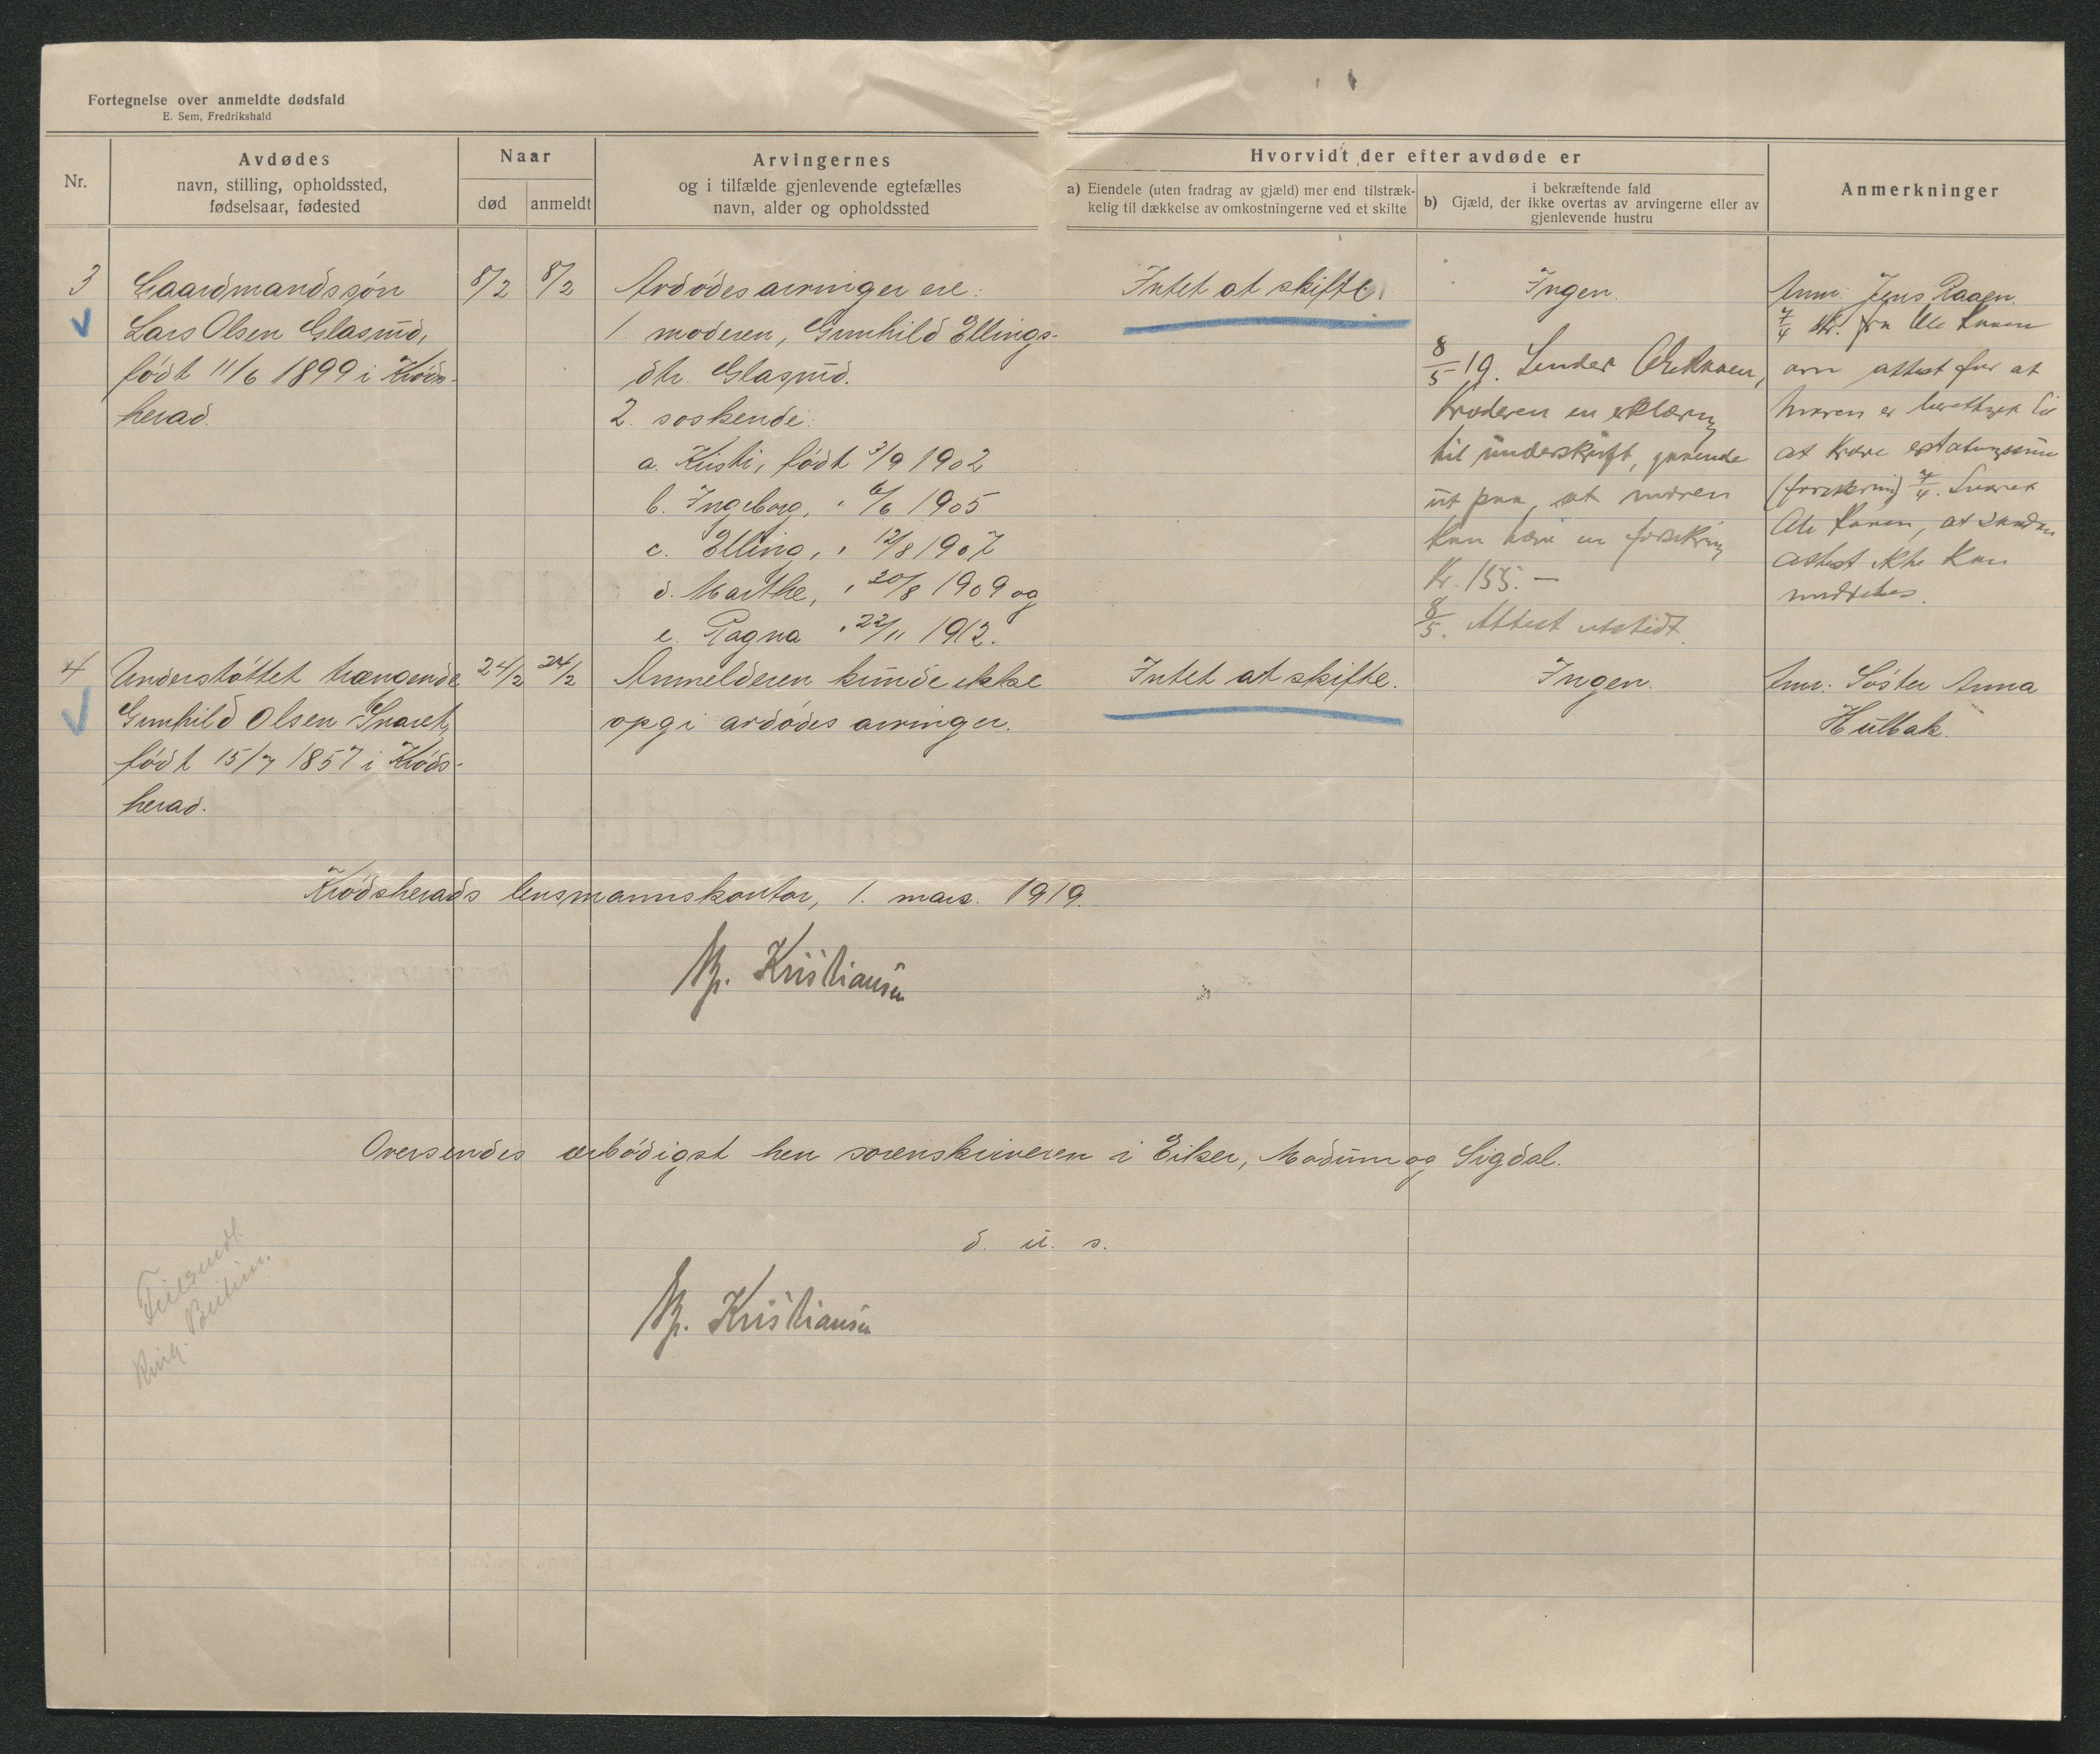 Fortegnelse over anmeldte dødsfald
E. Sem, Fredrikshald
Nr.
Avdødes
navn, stilling, opholdssted,
fødselsaar, fødested
Naar
død
anmeldt
Arvingernes
og i tilfælde gjenlevende egtefælles
navn, alder og opholdssted
Hvorvidt der efter avdøde er
a) Eiendele (uten fradrag av gjæld) mer end tilstræk-
kelig til dækkelse av omkostningerne ved et skifte
i bekræftende fald
b) Gjæld, der ikke overtas av arvingerne eller av
gjenlevende hustru
Anmerkninger
3
Gaardmandssøn
Lars Olsen Glasrud,
født 11/6 1899 i Krøds-
herad.
8/2
8/2
Avdødes arvinger ere:
1. moderen, Gunhild Ellings-
dtr. Glasrud.
2. søskende:
a. Kristi, født 3/9 1902
b. Ingeborg, " 6/6 1905
c. Elling, " 12/8 1907
d. Marthe, " 20/8 1909 og
e. Ragna " 22/11 1912.
Intet at skifte.
Ingen.
8/5 19. Sender
Krøderen en erklæring
til underskrift, gaaende
ut paa, at moren
kan hæve en forsikring
Kr. 155.–
8/5. Attest utstedt.
Anm: Jens Raaen.
7/4 fra Ole
om attest for at
moren er berettiget til
at kræve
7/4.
Ole at saadan
attest ikke kan
meddeles.
4
Understøttet trængende
Gunhild Olsen Snaret,
født 15/7 1857 i Krøds-
herad.
24/2
24/2
Anmelderen kunde ikke
opgi avdødes arvinger.
Intet at skifte.
Ingen.
Anm: Søster Anna
Hulbak.
Krødsherads lensmannskontor, 1. mars. 1919.
Kristiansen
Oversendes ærbødigst herr sorenskriveren i Eiker, Modum og Sigdal.
d. u. s.
Kristiansen